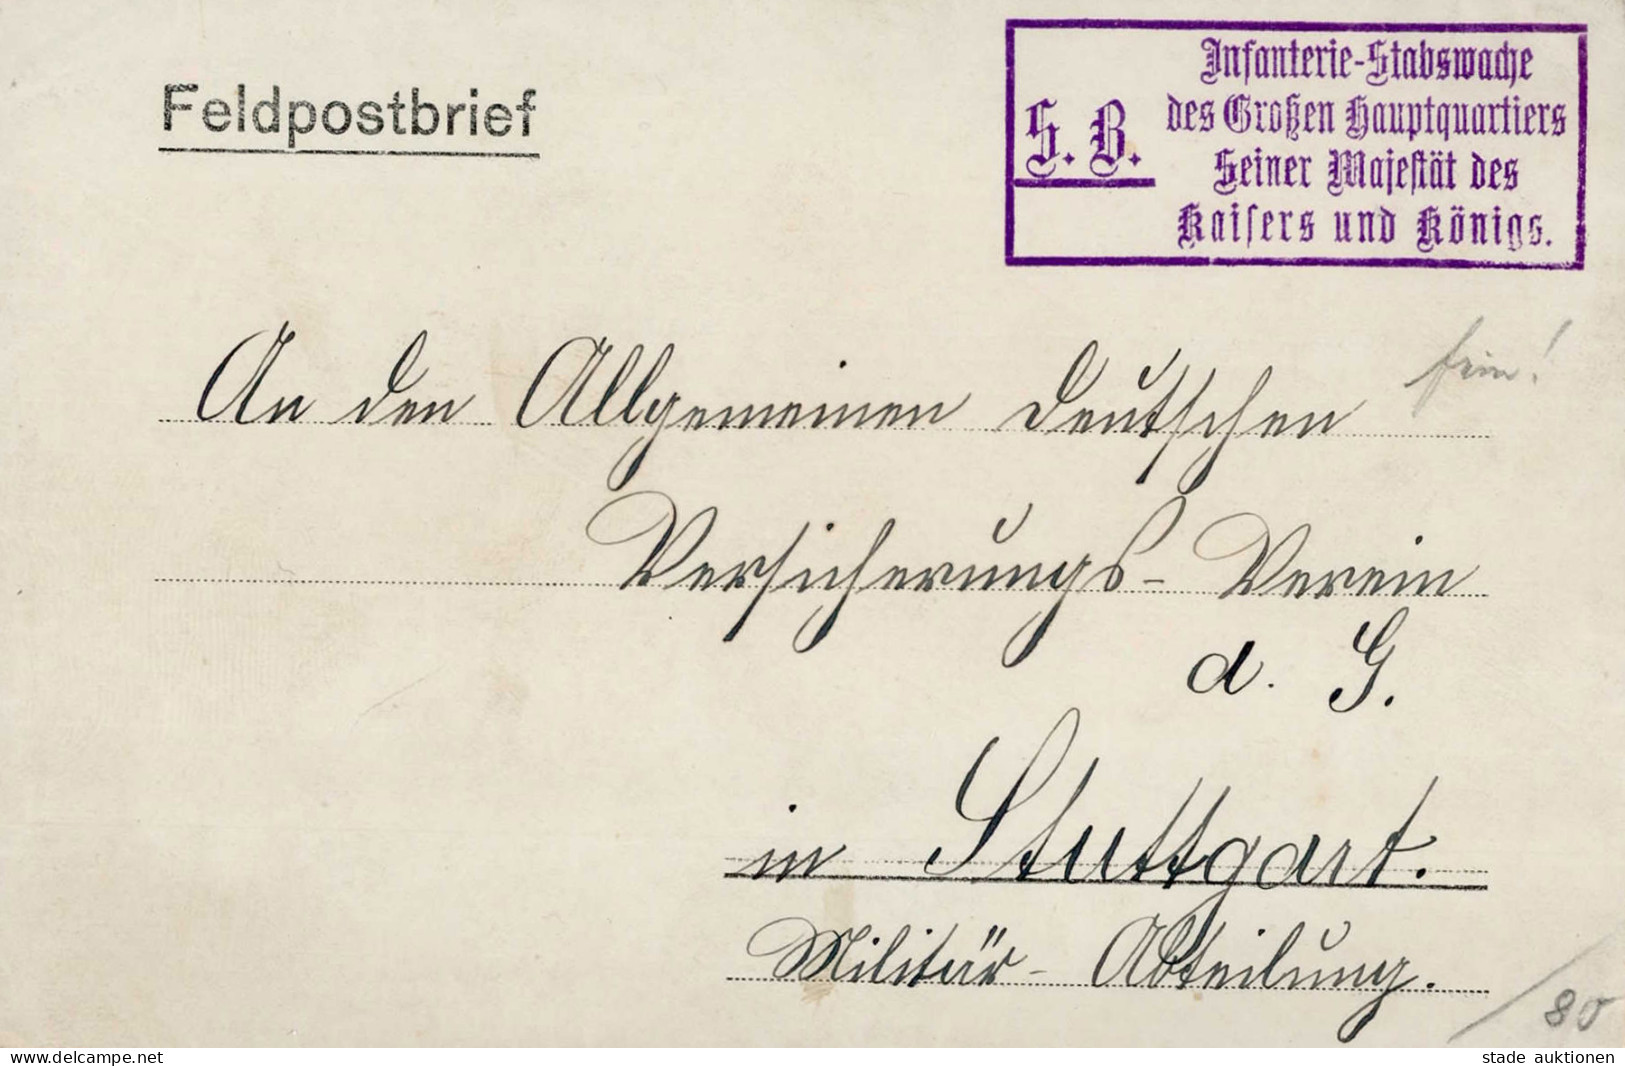 Feldpostbrief
S. B.
Infanterie-Stabswache
des Großen Hauptquartiers
Seiner Majestät des
Kaisers und Königs.
fein!
An den Allgemeinen Deutschen
Versicherungs-Verein
a. G.
in Stuttgart.
Militär-Abteilung.
80
www.delcampe.net
stade auktionen